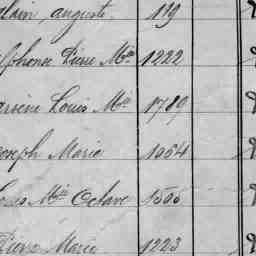 lain, auguste 119
lphonse Pierre Mie 1222
arsène Louis Mie 1789
oseph Marie 1064
ouis Mie Octave
Pierre Marie 1223